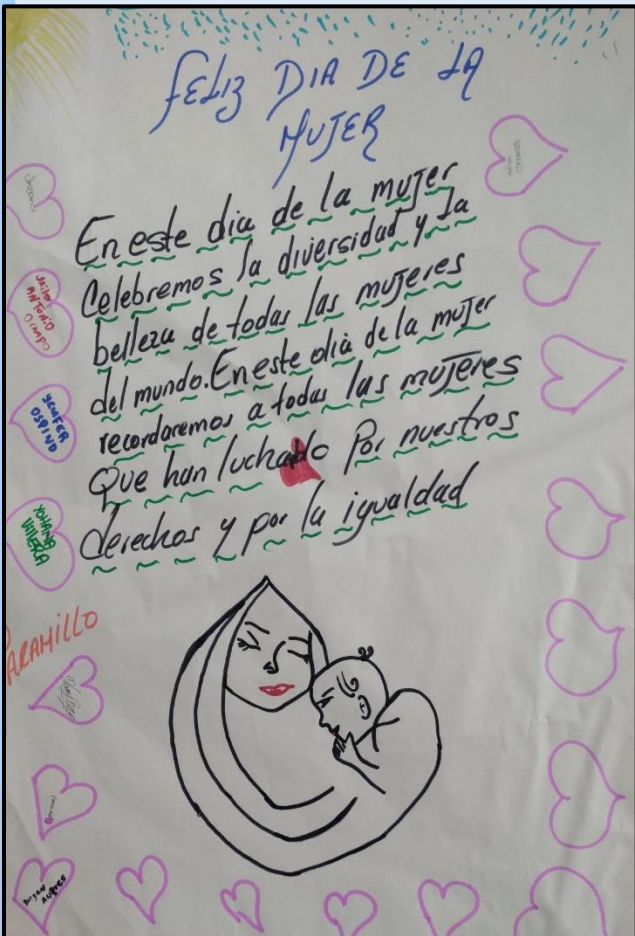 FELIZ DIA DE LA
MUJER
En este dia de la mujer
Celebremos la diversidad y la
belleza de todas las mujeres
del mundo. En este dia de la mujer
recordaremos a todas las mujeres
Que han luchado Por nuestros
derechos y por la igualdad
ANTONIO
OCAMPO
YENIFER
OSPINO
YOHANA
JARAMILLO